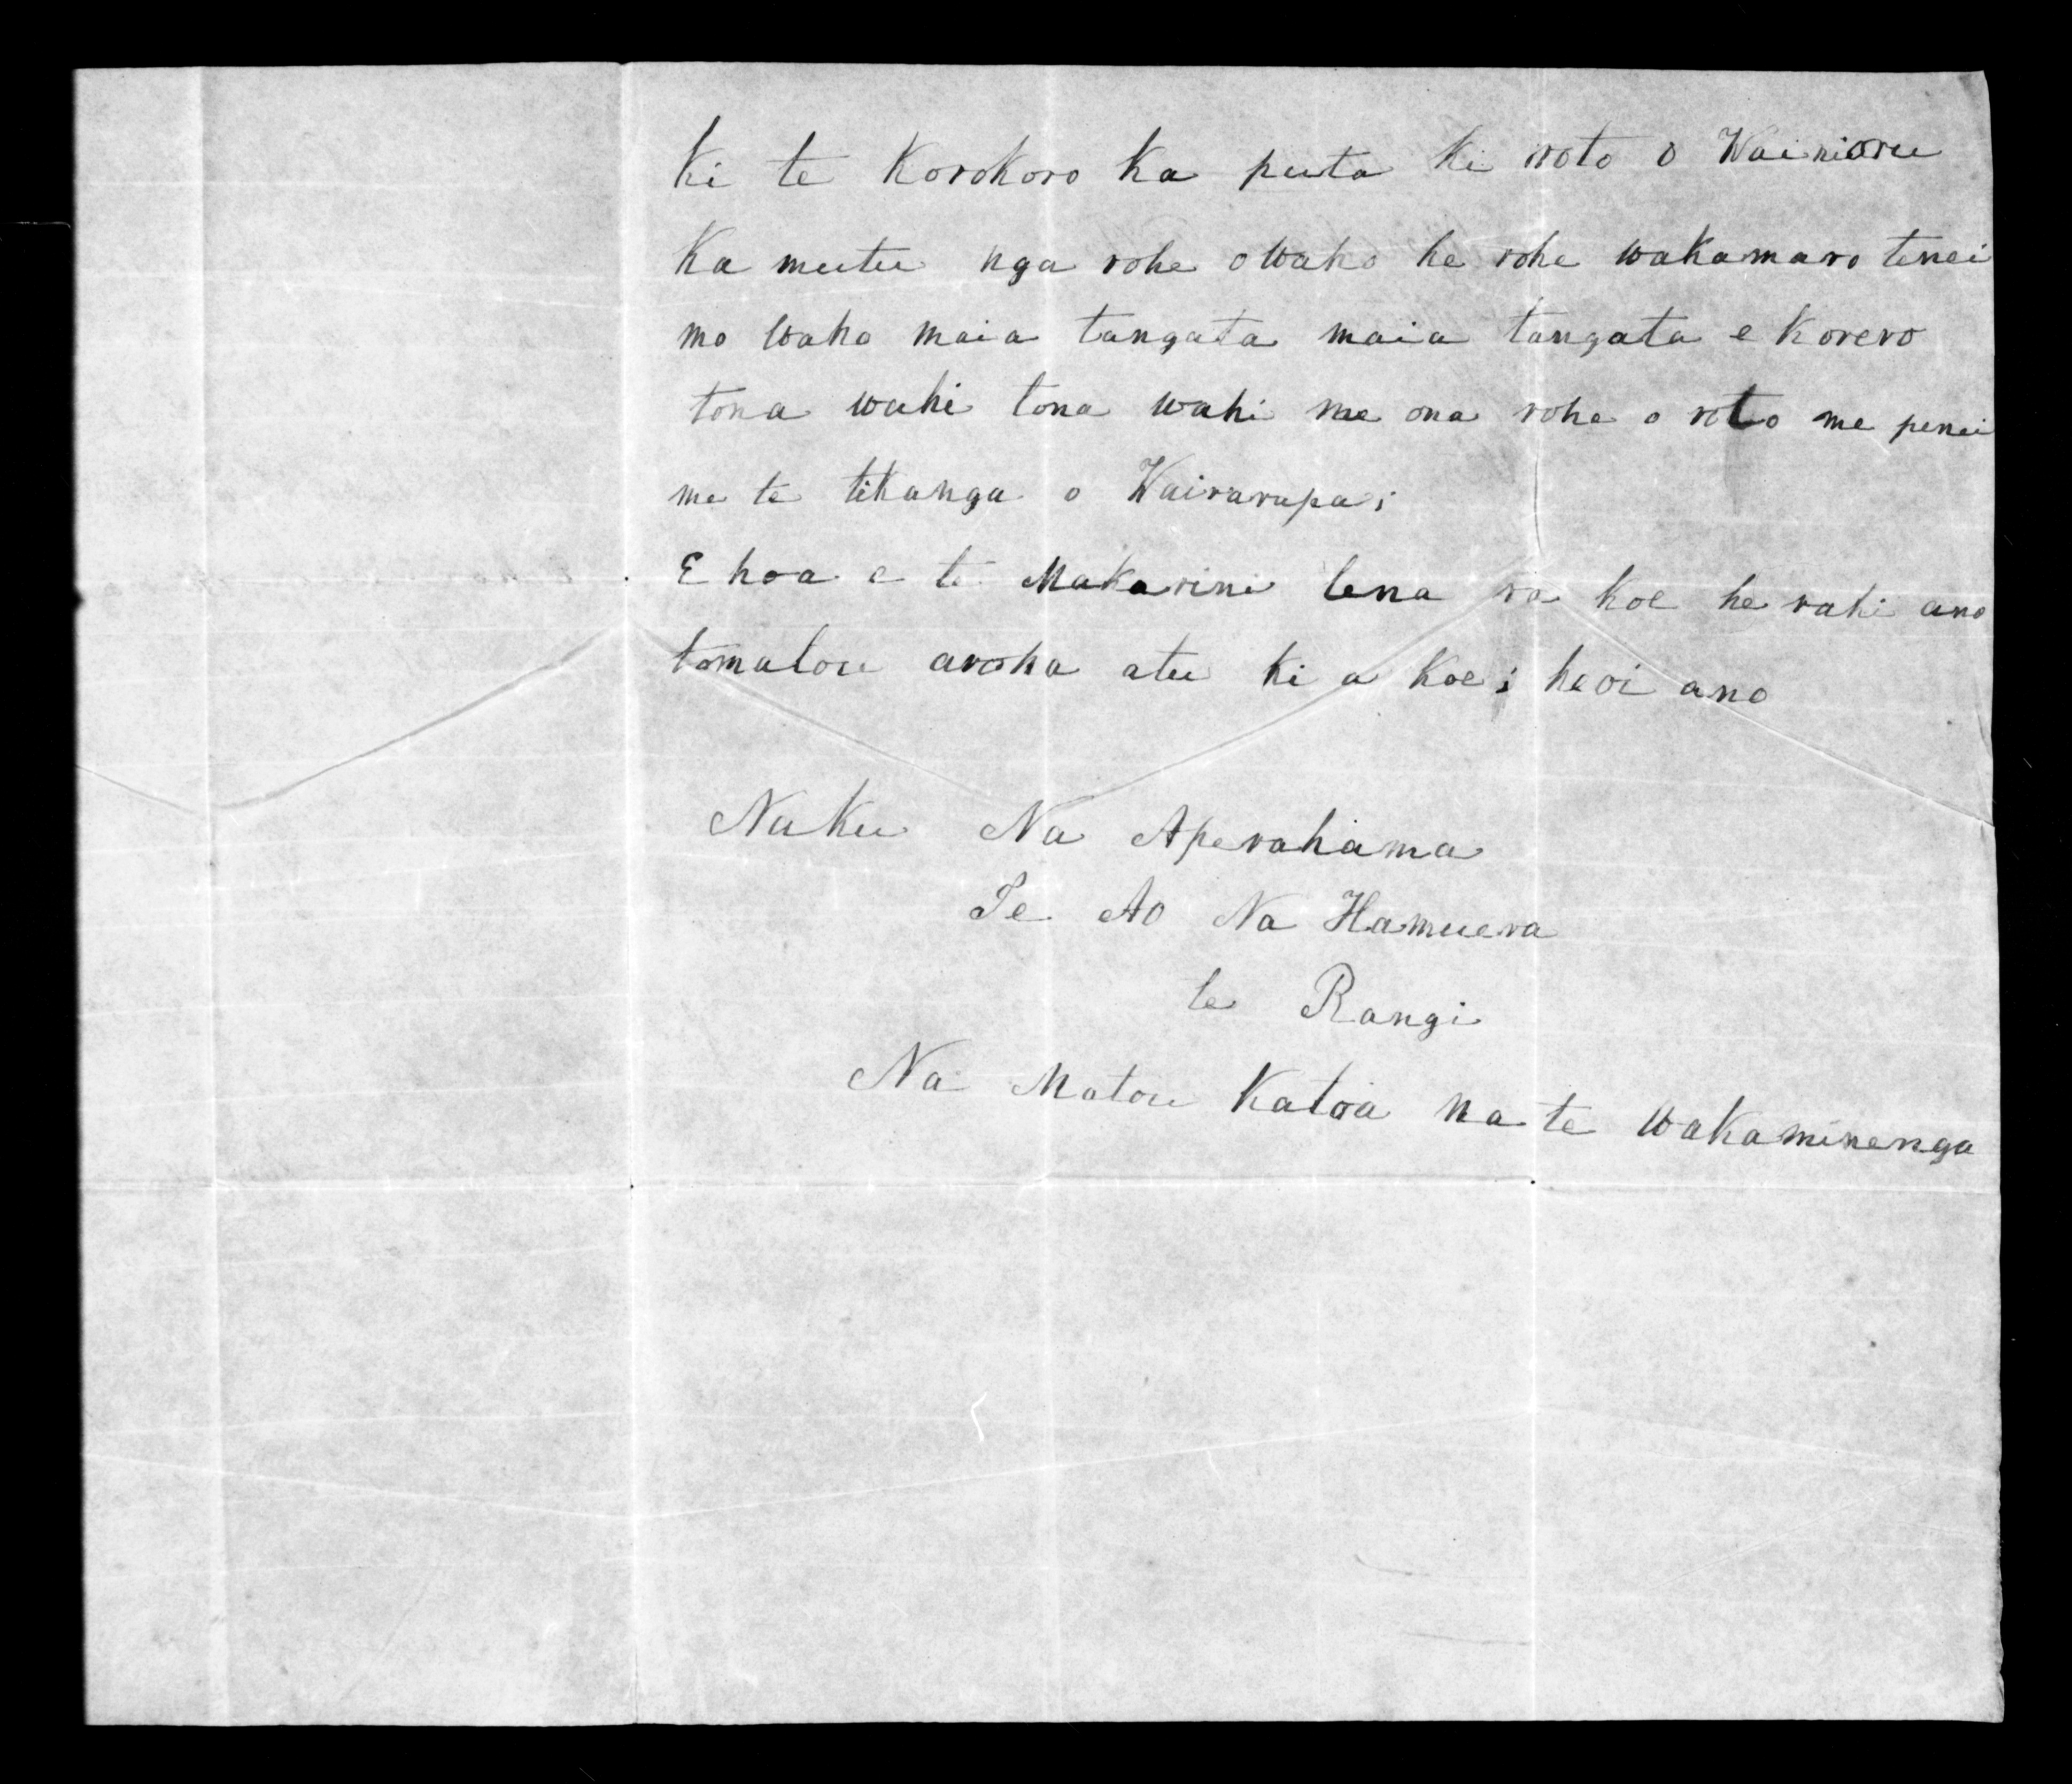 Ki te Korokoro Ka puta Ki roto o Wainioru
Ka mutu nga rohe o waho he rohe wakamaro tenei
mo waho maia tangata maia tangata e Korero
tona wahi tona wahi me ona rohe o roto me penei
me te tikanga o Wairarapa;
E hoa e te Makarini tena ra koe he rahi ano
tomatou aroha atu ki a Koe; heoi ano
Naku Na Aperahama
Te Ao Na Hamuera
te Rangi
Na Matou Katoa na te wakaminenga